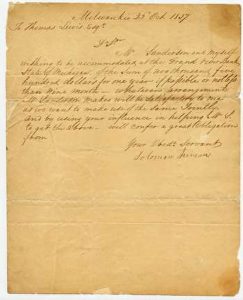 Milwaukie 23 Oct 1837
To Thomas Lewis Esqr
D Sir
Mr Sanderson and myself
wishing to be accommodated at the Grand River Bank
State of Michigan of the Sum of two thousand five
hundred dollars for one year if possible or not less
than nine month – whatever arrangement
Mr Sanderson makes will be Satisfactory to me
as we want to make use of the Same Jointly
And by using your influence in helping Mr S.
to get the above – will confer a great Obligation
from
Your Obedt Servant
Solomon Juneau